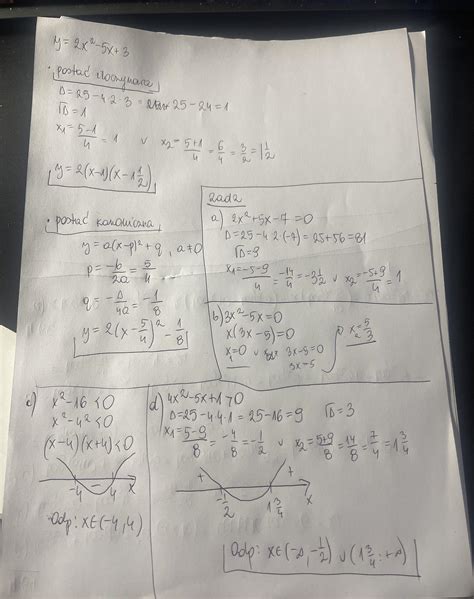 y=2x²-5x+3
• postać iloczynowa
Δ=25-4·2·3=25-24=1
√Δ=1
x₁=5-1/4=1 v x₂=5+1/4=6/4=3/2=1 1/2
y=2(x-1)(x-1 1/2)
• postać kanoniczna
y=a(x-p)²+q, a≠0
p=-b/2a=5/4
q=-Δ/4a=-1/8
y=2(x-5/4)²-1/8
Zad 2
a) 2x²+5x-7=0
Δ=25-4·2·(-7)=25+56=81
√Δ=9
x₁=-5-9/4=-14/4=-3 1/2 v x₂=-5+9/4=1
b) 3x²-5x=0
x(3x-5)=0
x=0 v 3x-5=0
3x=5
x=5/3
c) x²-16<0
x²-4²<0
(x-4)(x+4)<0
-4 4 x
Odp: x∈(-4,4)
d) 4x²-5x+1>0
Δ=25-4·4·1=25-16=9 √Δ=3
x₁=5-9/8=-4/8=-1/2 v x₂=5+9/8=14/8=7/4=1 3/4
+ + 
-1/2 1 3/4 x
Odp: x∈(-∞,-1/2) ∪ (1 3/4;+∞)